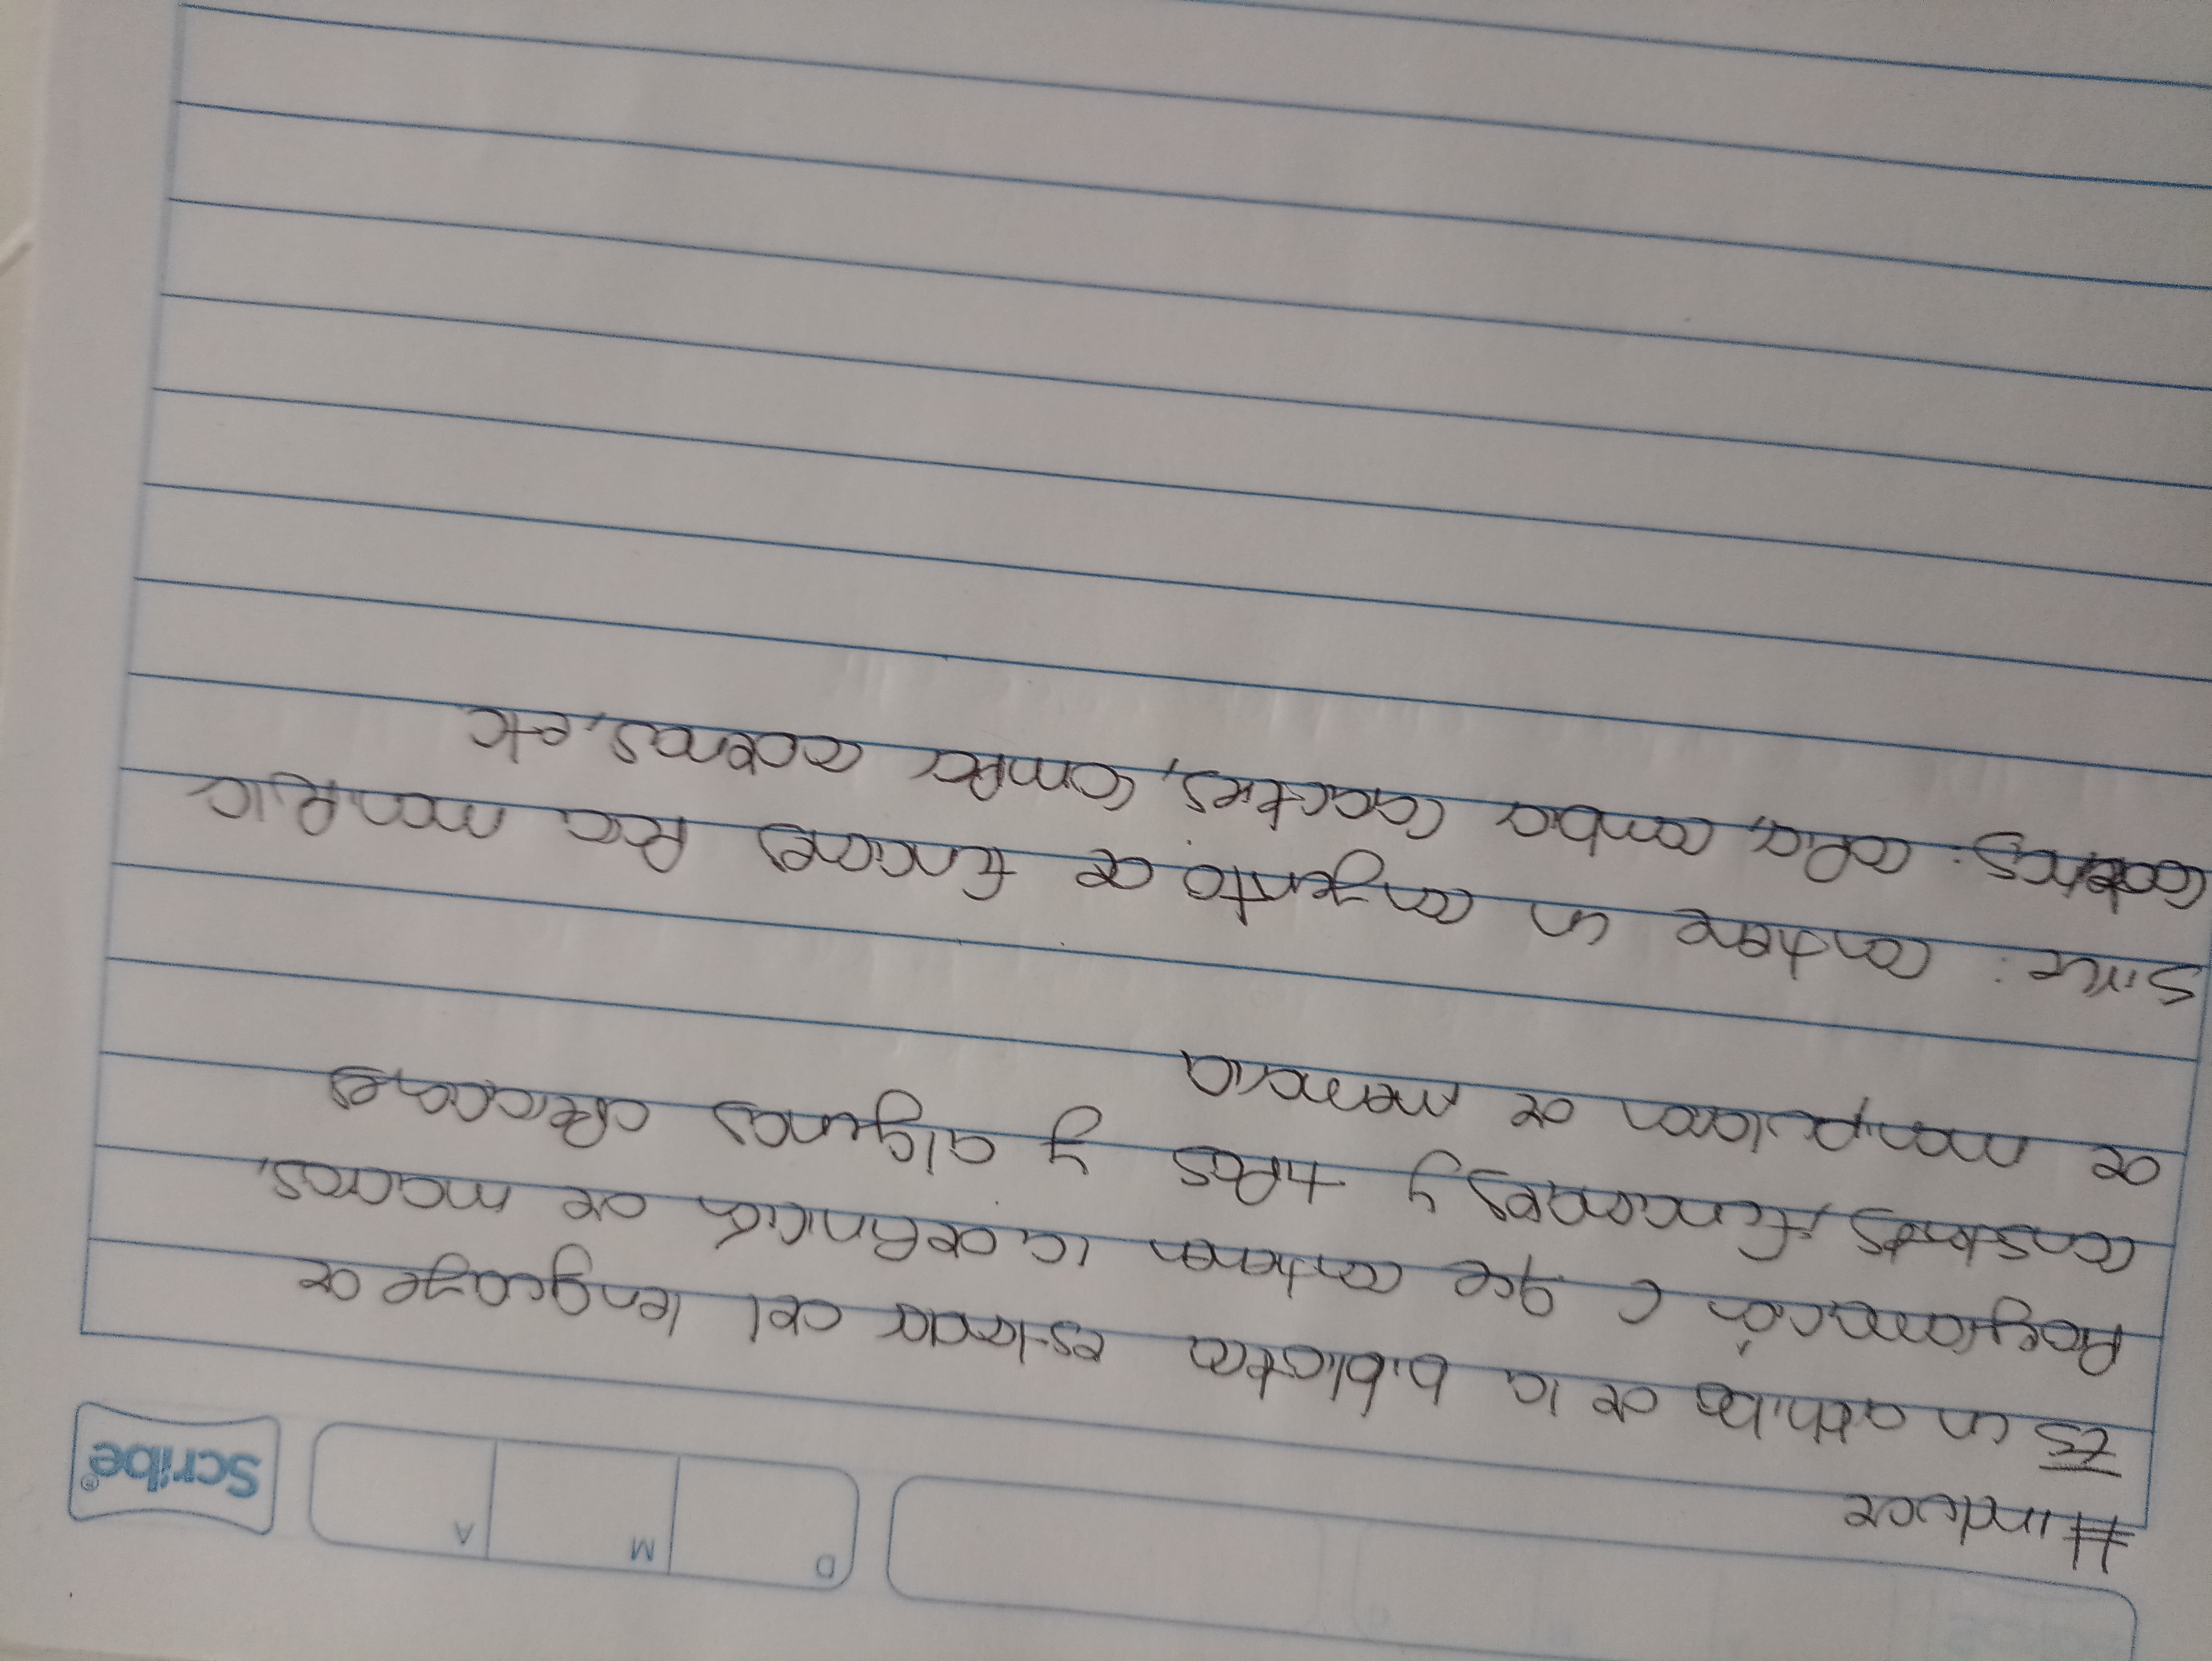 Scribe®
D M A
#include
Es un archivo de la biblioteca estandar del lenguaje de
Programación C que contienen la definición de macros,
constantes, funcionaes y tipos y algunas operaciones
de manipulacion de memoria
Sirve: contiene un conjunto de funciones para manipular
cadenas: copia, cambia caracteres, compara cadenas, etc